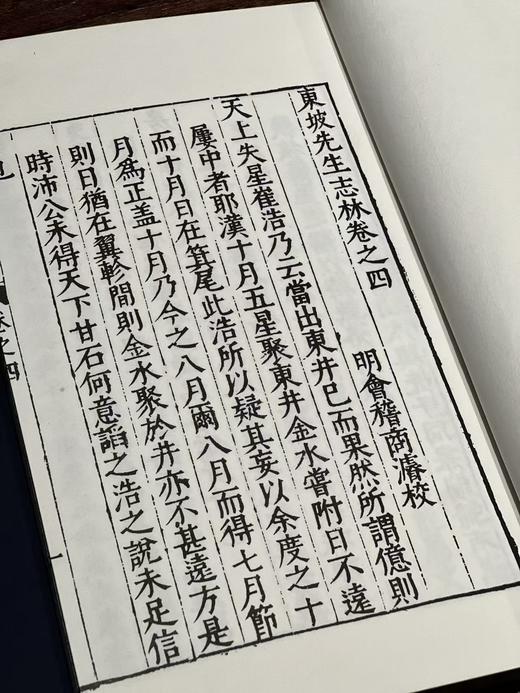 東坡先生志林卷之四
明會稽商濬校
天上失星崔浩乃云當出東井已而果然所謂億則
屢中者耶漢十月五星聚東井金水嘗附日不遠
而十月日在箕尾此浩所以疑其妄以余度之十
月為正盖十月乃今之八月爾八月而得七月節
則日猶在翼軫間則金水聚於井亦不甚遠方是
時沛公未得天下甘石何意謟之浩之說未足信
卷之四